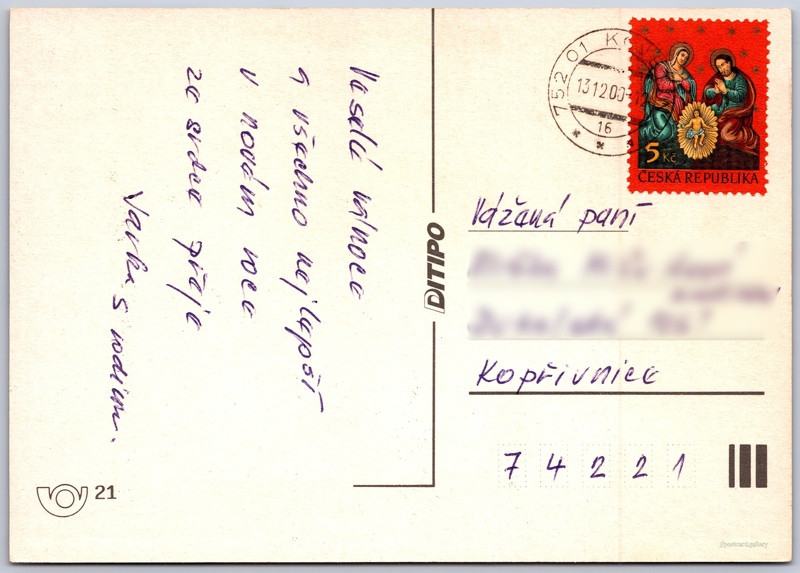 Veselé vánoce
a všechno nejlepší
v novém roce
ze srdce přeje
Vavka s rodinu.
21
DITIPO
752 01 KO
13.12.00-
16
5 Kč
ČESKÁ REPUBLIKA
Vážená paní
Kopřivnice
74221